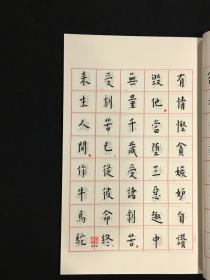 有情慳貪嫉妒自讚
毀他當墮三惡趣中
無量千歲受諸劇苦
受劇苦已從彼命終
来生人間作牛馬駝